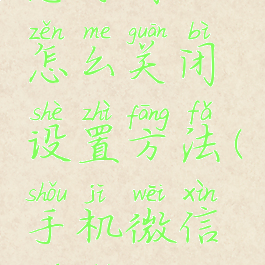 zěn me guān bì
怎么关闭
shè zhì fāng fǎ
设置方法(
shǒu jī wēi xìn
手机微信